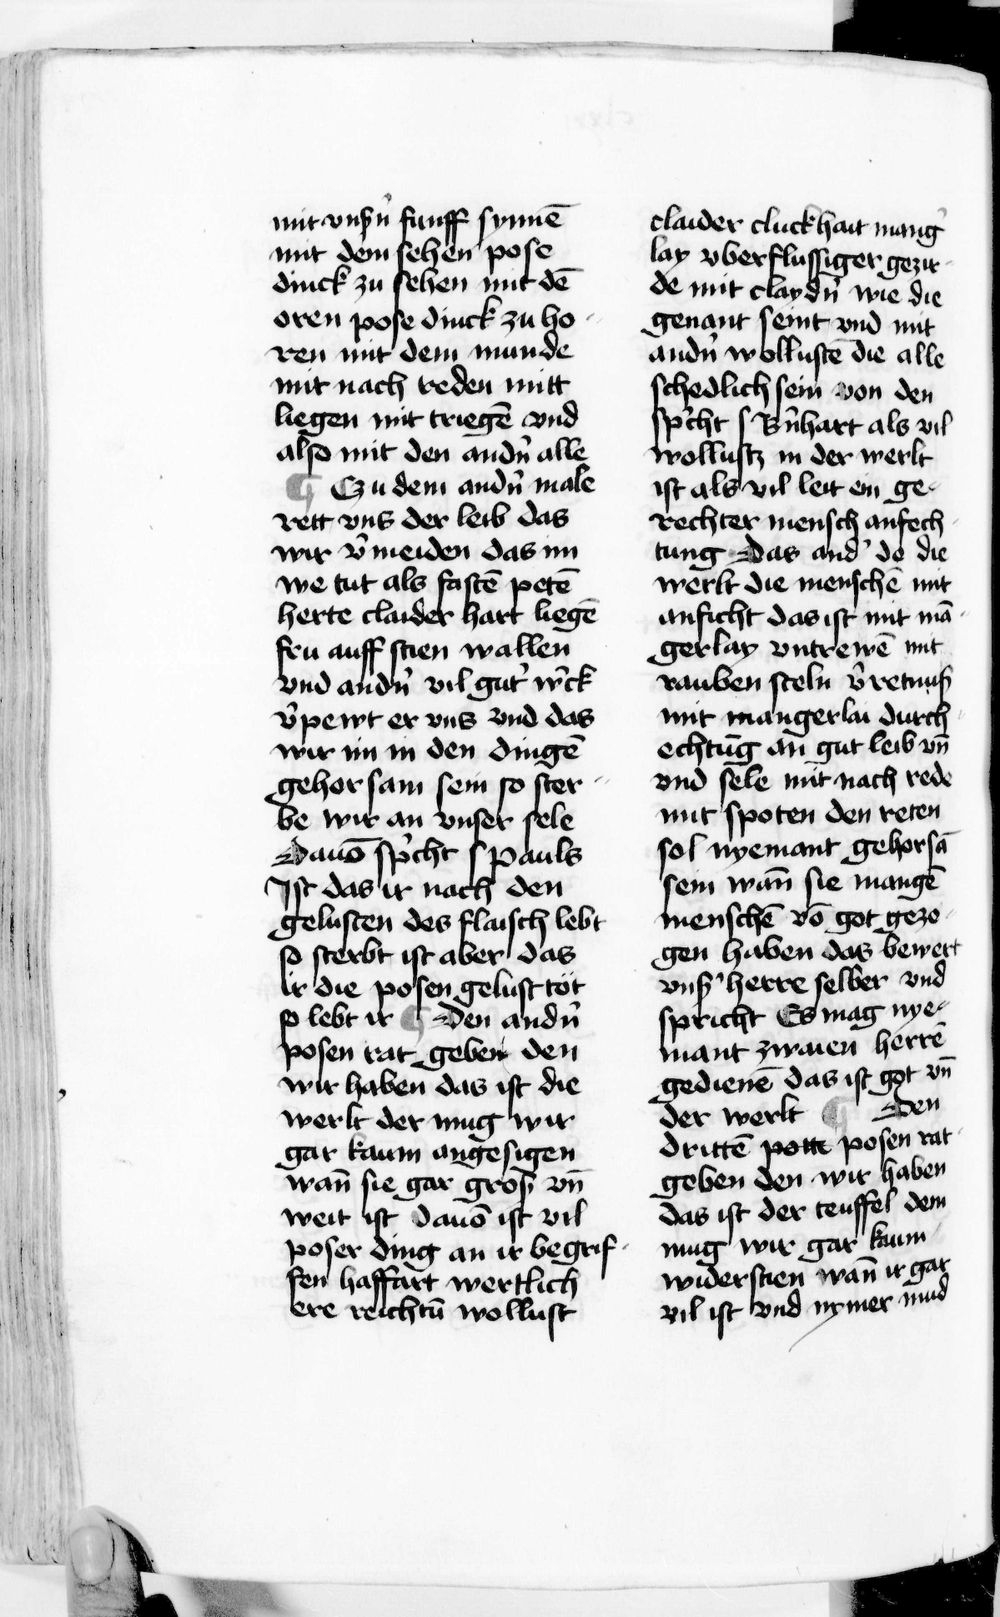 mit vnſ̉n funff synnē
mit dem sehen pose
dinck zu sehen mit dē
oren pose dinck zu ho-
ren mit dem munde
mit nach reden mitt
liegen mit triegē vnd
also mit den andn̉ alle
¶ Czu dem andn̉ male
rett vns der leib das
wir v̉meiden das im
we tut als fastē petē
herte claider hart liegē
fru auff sten wallen
vnd andn̉ vil gut̉ w̉ck
v̉pewt er vns vnd das
wir im in den dingē
gehorsam sein so ster-
be wir an vnser sele
Dauō sp̉cht s Pauls
Ist das ir nach den
gelusten des flaisch lebt
so sterbt ist aber das
ir die posen gelust töt
so lebt ir ¶ Den andn̉
posen rat geben den
wir haben das ist die
werlt der mug wir
gar kaum angesigen
wan̄ sie gar groß vn̄
weit ist Dauō ist vil
poser ding an ir begrif-
fen haffart wertlich
ere reichtū wollust
claider cluckhait mang̉
lay vberflussiger gezir-
de mit claydn̉ wie die
genant seint vnd mit
andn̉ wollustē die alle
schedlich sein von den
sp̉cht s Bn̉hart als vil
wollustz in der werlt
ist als vil leit ein ge-
rechter mensch anfech-
tung Das and̉ do die
werlt die menschē mit
anficht das ist mit mā-
gerlay vntrewē mit
rauben steln v̉retnuß
mit mangerlai durch-
echtūg an gut leib vn̄
vnd sele mit nach rede
mit spoten den reten
sol nyemant gehorsā
sein wan̄ sie mangē
menschē vō got gezo-
gen haben das bewert
vnß̉ herre selber vnd
spricht Es mag nye-
mant zwaien herrē
gedienē das ist got vn̄
der werlt ¶ Den
drittē potte posen rat-
geben den wir haben
das ist der teuffel dem
mug wir gar kaum
widersten wan̄ ir gar
vil ist vnd nymer mud